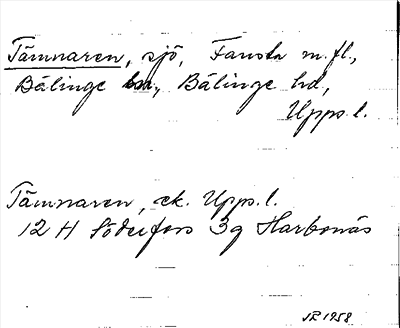 Tämnaren, sjö, Fansta m.fl.,
Bälinge sn, Bälinge hd,
Upps.l.
Tämnaren, ek. Upps.l.
12 H Söderfors 3g Harbonäs
1958